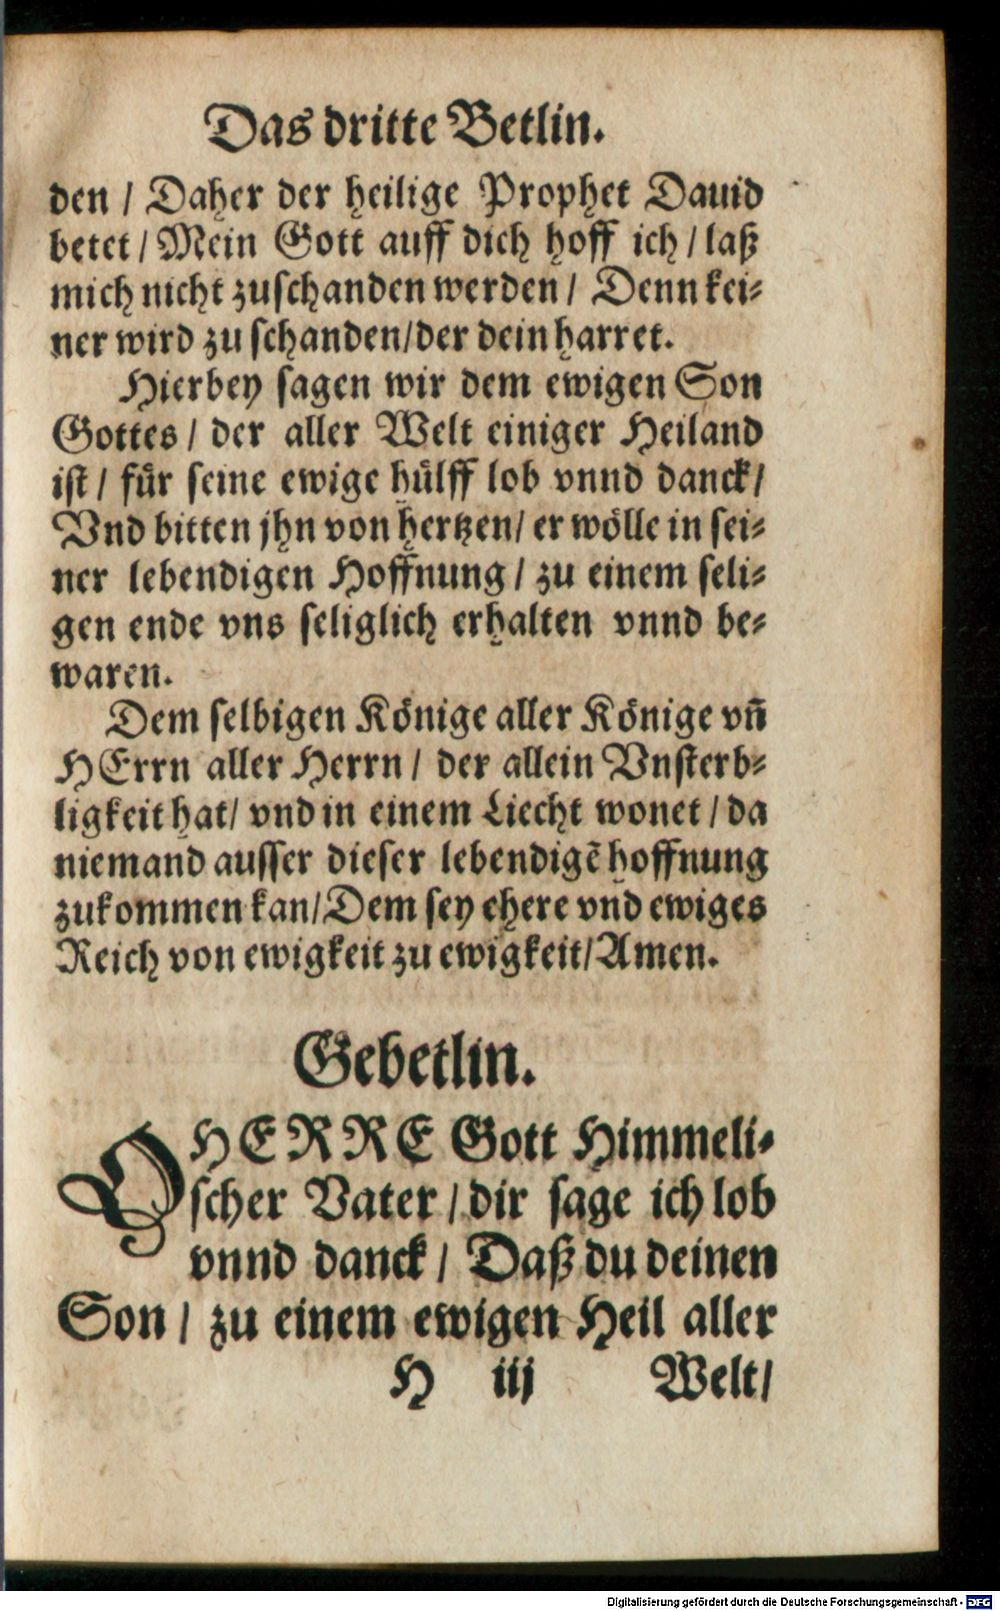 Das dritte Betlin.
den / Daher der heilige Prophet Dauid
betet / Mein Gott auff dich hoff ich / laß
mich nicht zuschanden werden / Denn kei-
ner wird zu schanden / der dein harret.
Hierbey sagen wir dem ewigen Son
Gottes / der aller Welt einiger Heiland
ist / für seine ewige hülff lob vnnd danck /
Vnd bitten jhn von hertzen / er wölle in sei-
ner lebendigen Hoffnung / zu einem seli-
gen ende vns seliglich erhalten vnnd be-
waren.
Dem selbigen Könige aller Könige vñ
HErrn aller Herrn / der allein Vnsterb-
ligkeit hat / vnd in einem Liecht wonet / da
niemand ausser dieser lebendigē hoffnung
zukommen kan / Dem sey ehere vnd ewiges
Reich von ewigkeit zu ewigkeit / Amen.
Gebetlin.
O HERRE Gott Himmeli-
scher Vater / dir sage ich lob
vnnd danck / Daß du deinen
Son / zu einem ewigen Heil aller
H iij Welt /
Digitalisierung gefördert durch die Deutsche Forschungsgemeinschaft - DFG